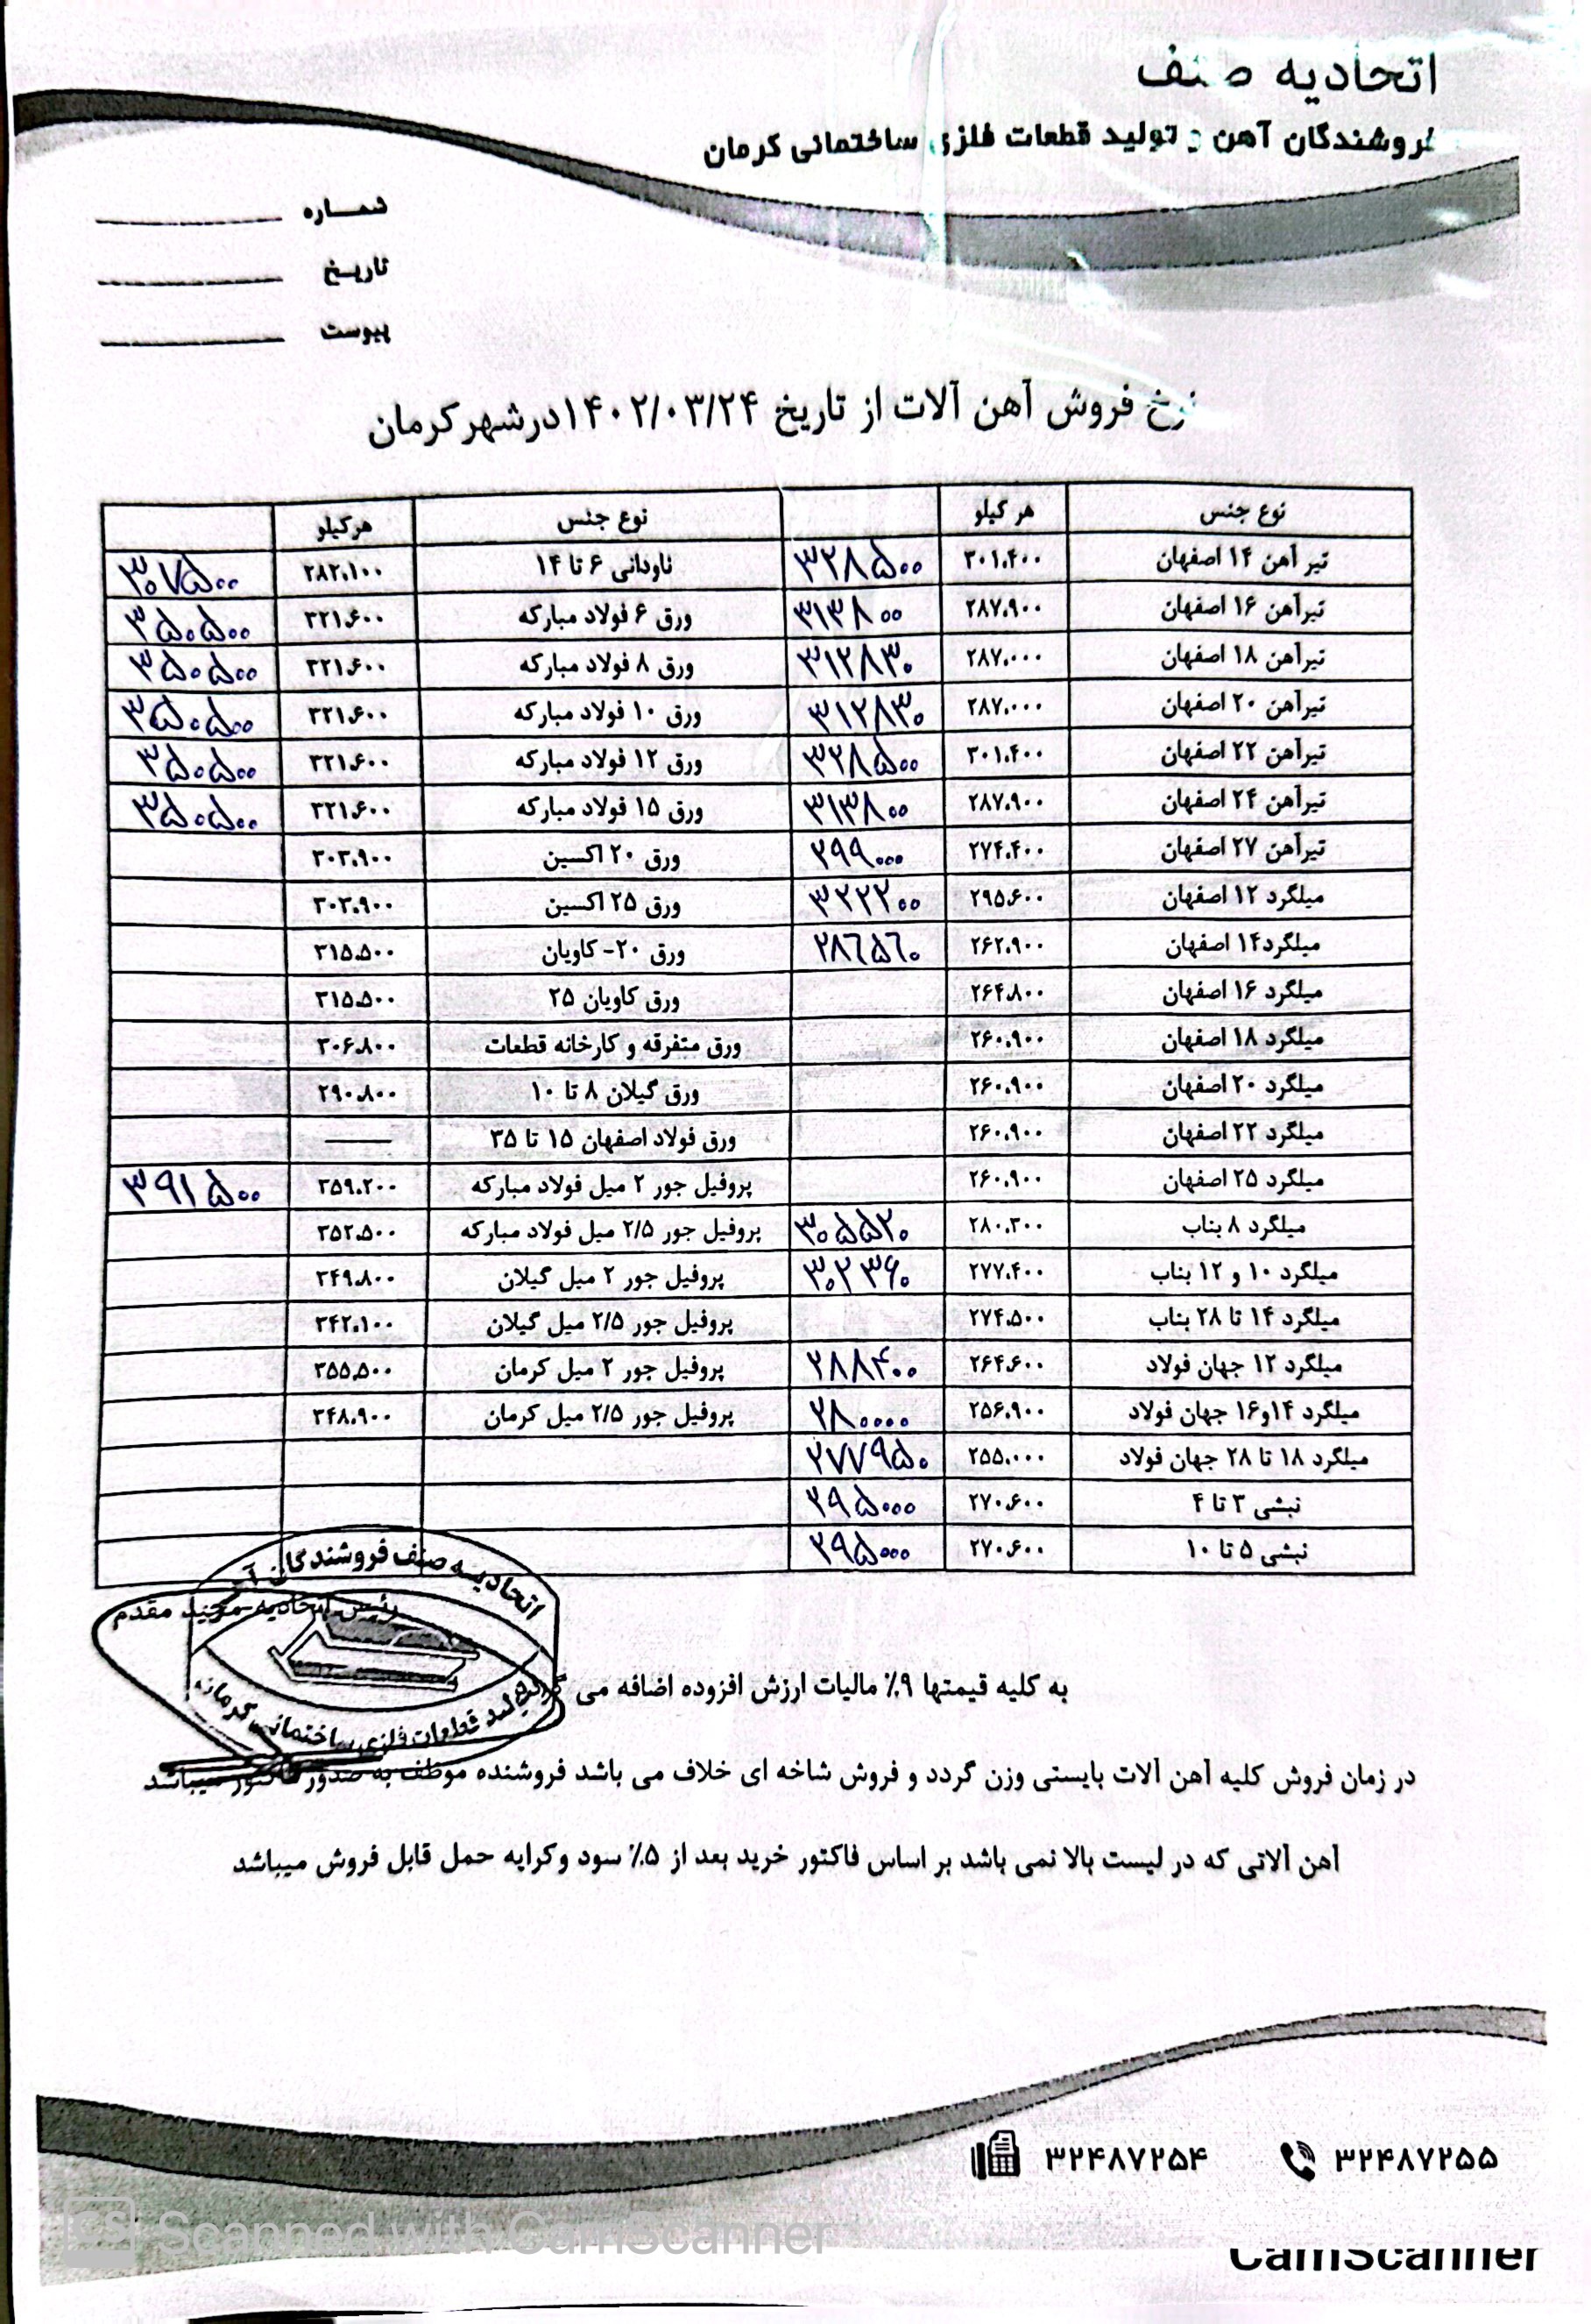 اتحادیه صنف
فروشندگان آهن و تولید قطعات فلزی ساختمانی کرمان
شماره
تاریخ
پیوست
نرخ فروش آهن آلات از تاریخ ۱۴۰۲/۰۳/۲۴ درشهرکرمان
نوع جنس هر کیلو نوع جنس هرکیلو
تیر آهن ۱۴ اصفهان ۳۰۱.۴۰۰ ۳۲۸۵۰۰ ناودانی ۶ تا ۱۴ ۲۸۲.۱۰۰ ۳۰۷۵۰۰
تیرآهن ۱۶ اصفهان ۲۸۷.۹۰۰ ۳۱۳۸۰۰ ورق ۶ فولاد مبارکه ۳۲۱.۶۰۰ ۳۵۰۵۰۰
تیرآهن ۱۸ اصفهان ۲۸۷.۰۰۰ ۳۱۲۸۳۰ ورق ۸ فولاد مبارکه ۳۲۱.۶۰۰ ۳۵۰۵۰۰
تیرآهن ۲۰ اصفهان ۲۸۷.۰۰۰ ۳۱۲۸۳۰ ورق ۱۰ فولاد مبارکه ۳۲۱.۶۰۰ ۳۵۰۵۰۰
تیرآهن ۲۲ اصفهان ۳۰۱.۴۰۰ ۳۲۸۵۰۰ ورق ۱۲ فولاد مبارکه ۳۲۱.۶۰۰ ۳۵۰۵۰۰
تیرآهن ۲۴ اصفهان ۲۸۷.۹۰۰ ۳۱۳۸۰۰ ورق ۱۵ فولاد مبارکه ۳۲۱.۶۰۰ ۳۵۰۵۰۰
تیرآهن ۲۷ اصفهان ۲۷۴.۴۰۰ ۲۹۹۰۰۰ ورق ۲۰ اکسین ۳۰۳.۹۰۰
میلگرد ۱۲ اصفهان ۲۹۵.۶۰۰ ۳۲۲۲۰۰ ورق ۲۵ اکسین ۳۰۳.۹۰۰
میلگرد۱۴ اصفهان ۲۶۲.۹۰۰ ۲۸۶۵۶۰ ورق ۲۰- کاویان ۳۱۵.۵۰۰
میلگرد ۱۶ اصفهان ۲۶۴.۸۰۰ ورق کاویان ۲۵ ۳۱۵.۵۰۰
میلگرد ۱۸ اصفهان ۲۶۰.۹۰۰ ورق متفرقه و کارخانه قطعات ۳۰۶.۸۰۰
میلگرد ۲۰ اصفهان ۲۶۰.۹۰۰ ورق گیلان ۸ تا ۱۰ ۲۹۰.۸۰۰
میلگرد ۲۲ اصفهان ۲۶۰.۹۰۰ ورق فولاد اصفهان ۱۵ تا ۳۵ ——
میلگرد ۲۵ اصفهان ۲۶۰.۹۰۰ پروفیل جور ۲ میل فولاد مبارکه ۳۵۹.۲۰۰ ۳۹۱۵۰۰
میلگرد ۸ بناب ۲۸۰.۳۰۰ ۳۰۵۵۲۰ پروفیل جور ۲/۵ میل فولاد مبارکه ۳۵۲.۵۰۰
میلگرد ۱۰ و ۱۲ بناب ۲۷۷.۴۰۰ ۳۰۲۳۶۰ پروفیل جور ۲ میل گیلان ۳۴۹.۸۰۰
میلگرد ۱۴ تا ۲۸ بناب ۲۷۴.۵۰۰ پروفیل جور ۲/۵ میل گیلان ۳۴۲.۱۰۰
میلگرد ۱۲ جهان فولاد ۲۶۴.۶۰۰ ۲۸۸۴۰۰ پروفیل جور ۲ میل کرمان ۳۵۵.۵۰۰
میلگرد ۱۴و۱۶ جهان فولاد ۲۵۶.۹۰۰ ۲۸۰۰۰۰ پروفیل جور ۲/۵ میل کرمان ۳۴۸.۹۰۰
میلگرد ۱۸ تا ۲۸ جهان فولاد ۲۵۵.۰۰۰ ۲۷۷۹۵۰
نبشی ۳ تا ۴ ۲۷۰.۶۰۰ ۲۹۵۰۰۰
نبشی ۵ تا ۱۰ ۲۷۰.۶۰۰ ۲۹۵۰۰۰
اتحادیه صنف فروشندگان
رئیس اتحادیه-مجید مقدم
تولید قطعات فلزی ساختمانی کرمان
به کلیه قیمتها ۹٪ مالیات ارزش افزوده اضافه می
در زمان فروش کلیه آهن آلات بایستی وزن گردد و فروش شاخه ای خلاف می باشد فروشنده موظف به صدور فاکتور میباشد
آهن آلاتی که در لیست بالا نمی باشد بر اساس فاکتور خرید بعد از ۵٪ سود وکرایه حمل قابل فروش میباشد
۳۲۴۸۷۲۵۵ ۳۲۴۸۷۲۵۴
CS Scanned with CamScanner
CamScanner